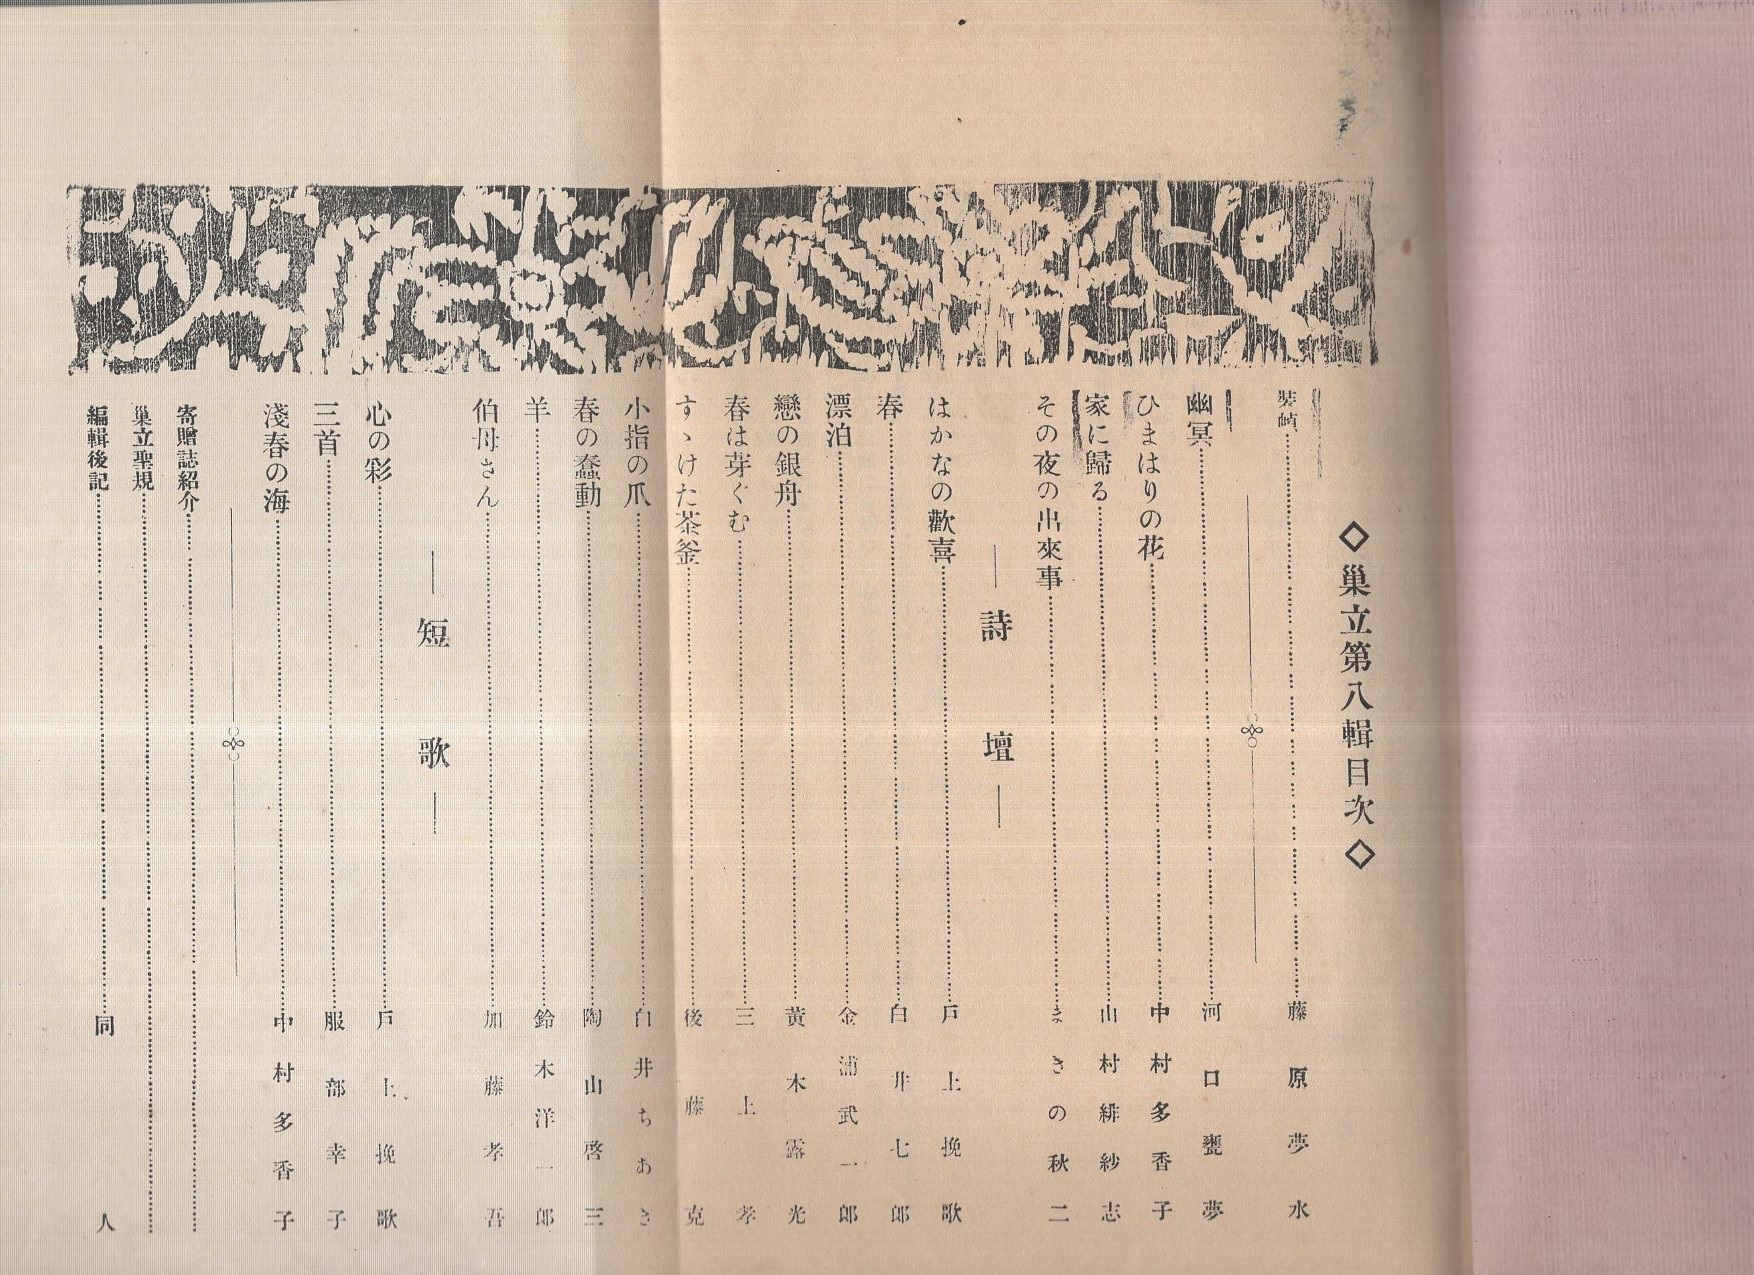 ◇巣立第八輯目次◇
装幀 藤原夢水
幽冥 河口甕夢
ひまはりの花 中村多香子
家に歸る 山村緋紗志
その夜の出來事 まきの秋二
―詩壇―
はかなの歡喜 戸上挽歌
春 白井七郎
漂泊 金浦武一郎
戀の銀舟 黄木露光
春は芽ぐむ 三上孝
すゝけた茶釜 後藤克
小指の爪 白井ちあき
春の蠢動 陶山啓三
羊 鈴木洋一郎
伯母さん 加藤孝吾
―短歌―
心の彩 戸上挽歌
三首 服部幸子
淺春の海 中村多香子
寄贈誌紹介
巣立聖規
編輯後記 同人